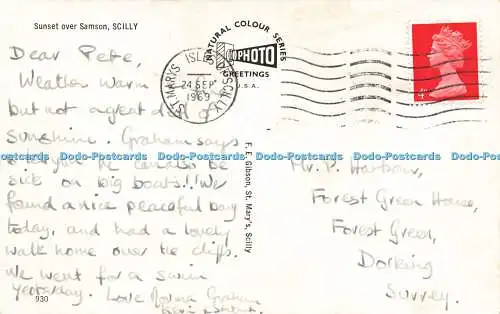 Sunset over Samson, SCILLY
Dear Pete,
Weather warm
but not a great deal of
sunshine. Graham says
tell you he can also be
sick on big boats!! We
found a nice peaceful bay
today, and had a lovely
walk home over the cliffs.
We went for a swim
yesterday. Love Norma Graham
Kevin
930
F. E. Gibson, St. Mary's, Scilly
NATURAL COLOUR SERIES
PHOTO
GREETINGS
U.S.A.
ST. MARYS ISLES OF SCILLY
24 SEP
1969
4d
Mr. P. Harbour,
Forest Green House,
Forest Green,
Dorking
Surrey.
Dodo-Postcards Dodo-Postcards Dodo-Postcards Dodo-Postcards Dodo-Postcards